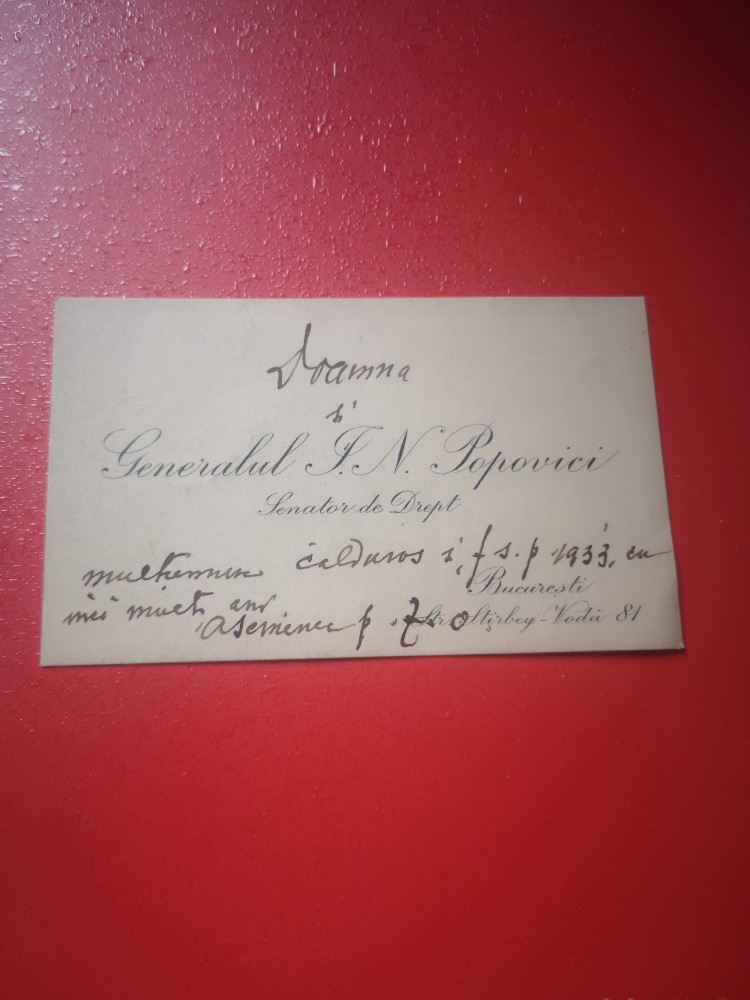 Doamna
și
Generalul I. N. Popovici
Senator de Drept
multumesc călduros și f s. p 1933, cu
București
mulți ani
Str. Știrbey-Vodă 81
asemenea p